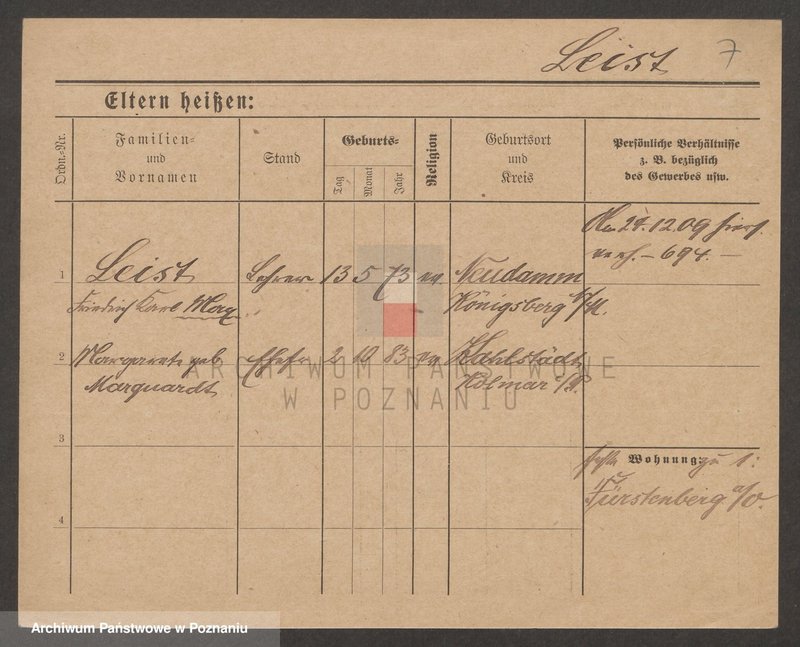 Leist 7
Eltern heißen:
Ordn.-Nr.
Familien-
und
Vornamen
Stand
Geburts-
Tag
Monat
Jahr
Religion
Geburtsort
und
Kreis
Persönliche Verhältnisse
z. B. bezüglich
des Gewerbes usw.
1 Leist Lehrer 13 5 73 ev Neudamm
Friedrich Karl Max Königsberg N/M.
12 09
694. —
2 Margarete geb Ehefr 2 10 83 ev
Marquardt Kolmar i/P.
3
Wohnung:
Fürstenberg a/O.
4
ARCHIWUM PAŃSTWOWE
W POZNANIU
Archiwum Państwowe w Poznaniu